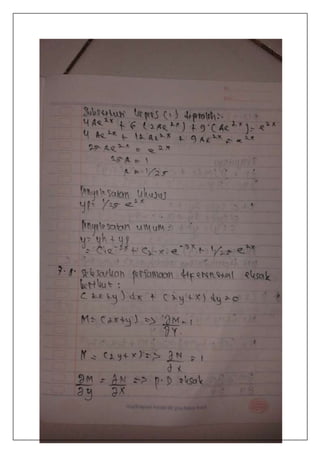 Subsertusi kepers (1) diperoleh:
4 Ae^2x + 6 (2Ae^2x) + 9 (Ae^2x) = e^2x
4 Ae^2x + 12 Ae^2x + 9 Ae^2x = e^2x
25 Ae^2x = e^2x
25 A = 1
A = 1/25
Penyelesaian khusus
yp = 1/25 e^2x
Penyelesaian umum
y = yh + yp
= C1e^-3x + C2 x e^-3x + 1/25 e^2x
Selesaikan persamaan diferensial eksak
berikut :
(2x+y) dx + (2y+x) dy = 0
M = (2x+y) => ∂M/∂y = 1
N = (2y+x) => ∂N/∂x = 1
∂M/∂y = ∂N/∂x => P.D eksak